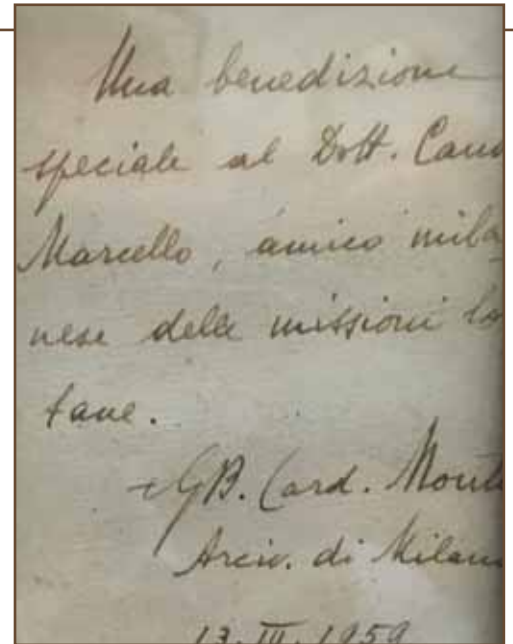 Una benedizione
speciale al Dott. Cand
Marcello, amico mila
nese delle missioni lo
tane.
+ GB. Card. Monti
Arciv. di Milano
13. III. 1959